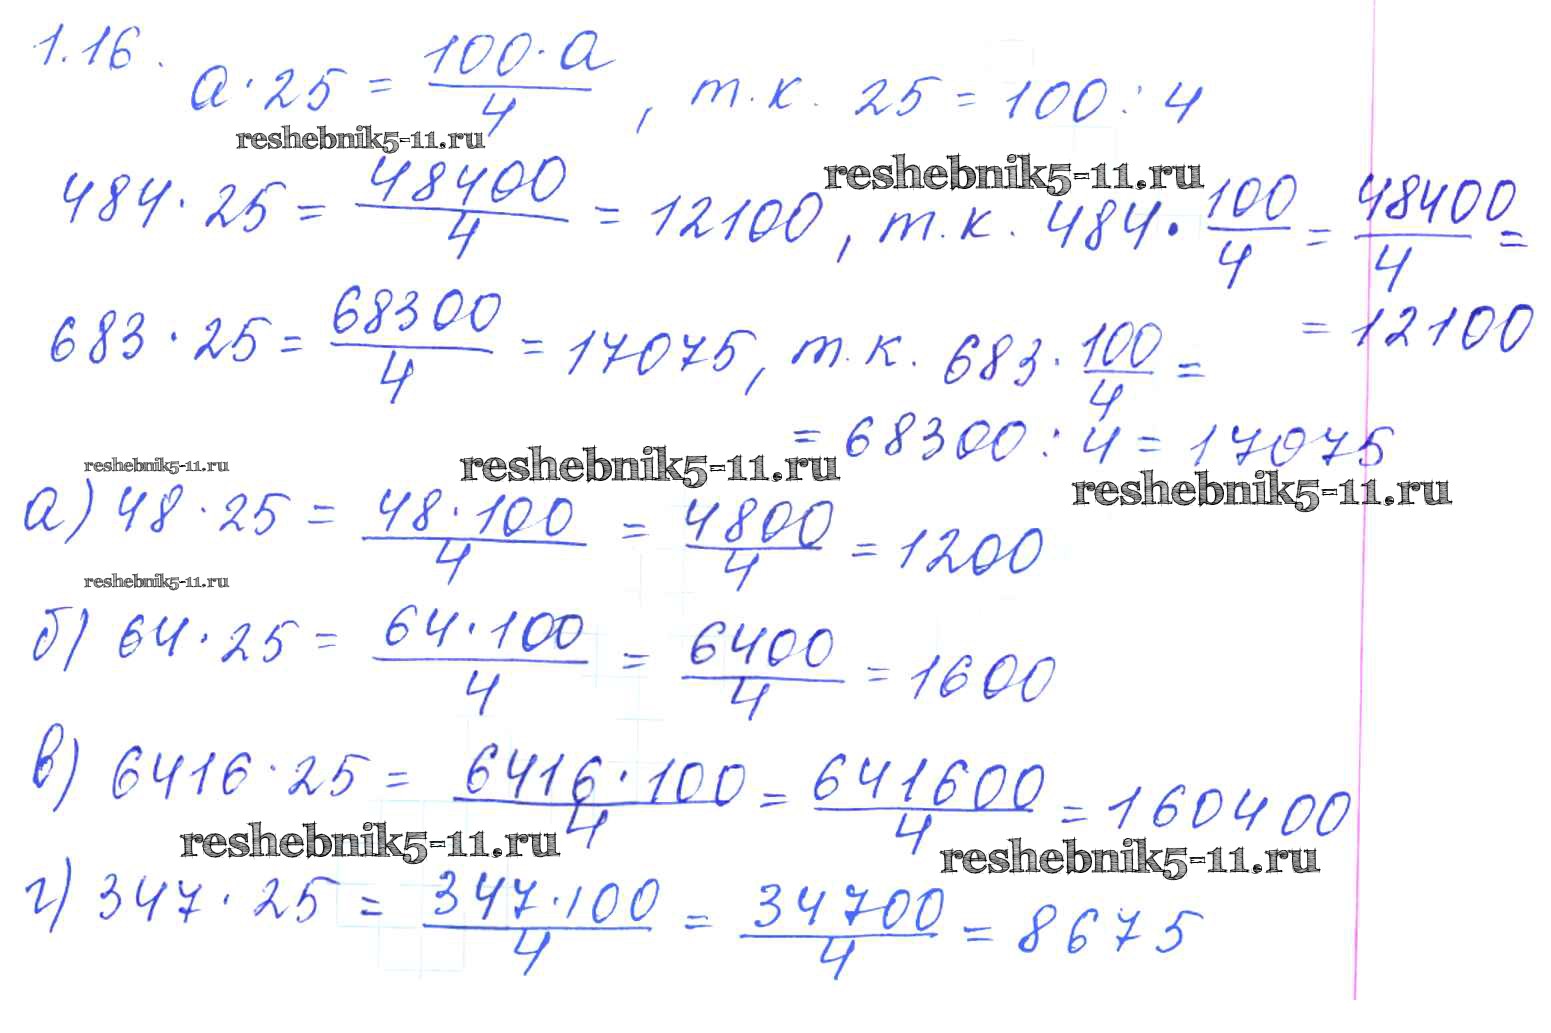 1.16.
a·25 = 100·a/4, т.к. 25 = 100:4
reshebnik5-11.ru
reshebnik5-11.ru
484·25 = 48400/4 = 12100, т.к. 484·100/4 = 48400/4 =
= 12100
683·25 = 68300/4 = 17075, т.к. 683·100/4 =
= 68300:4 = 17075
reshebnik5-11.ru
reshebnik5-11.ru
reshebnik5-11.ru
а) 48·25 = 48·100/4 = 4800/4 = 1200
reshebnik5-11.ru
б) 64·25 = 64·100/4 = 6400/4 = 1600
в) 6416·25 = 6416·100/4 = 641600/4 = 160400
reshebnik5-11.ru
reshebnik5-11.ru
г) 347·25 = 347·100/4 = 34700/4 = 8675